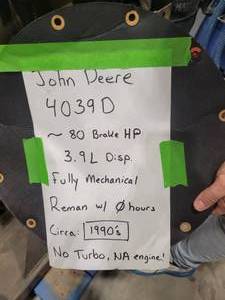 John Deere
4039D
~ 80 Brake HP
3.9L Disp.
Fully Mechanical
Reman w/ Ø hours
Circa: 1990's
No Turbo, NA engine!